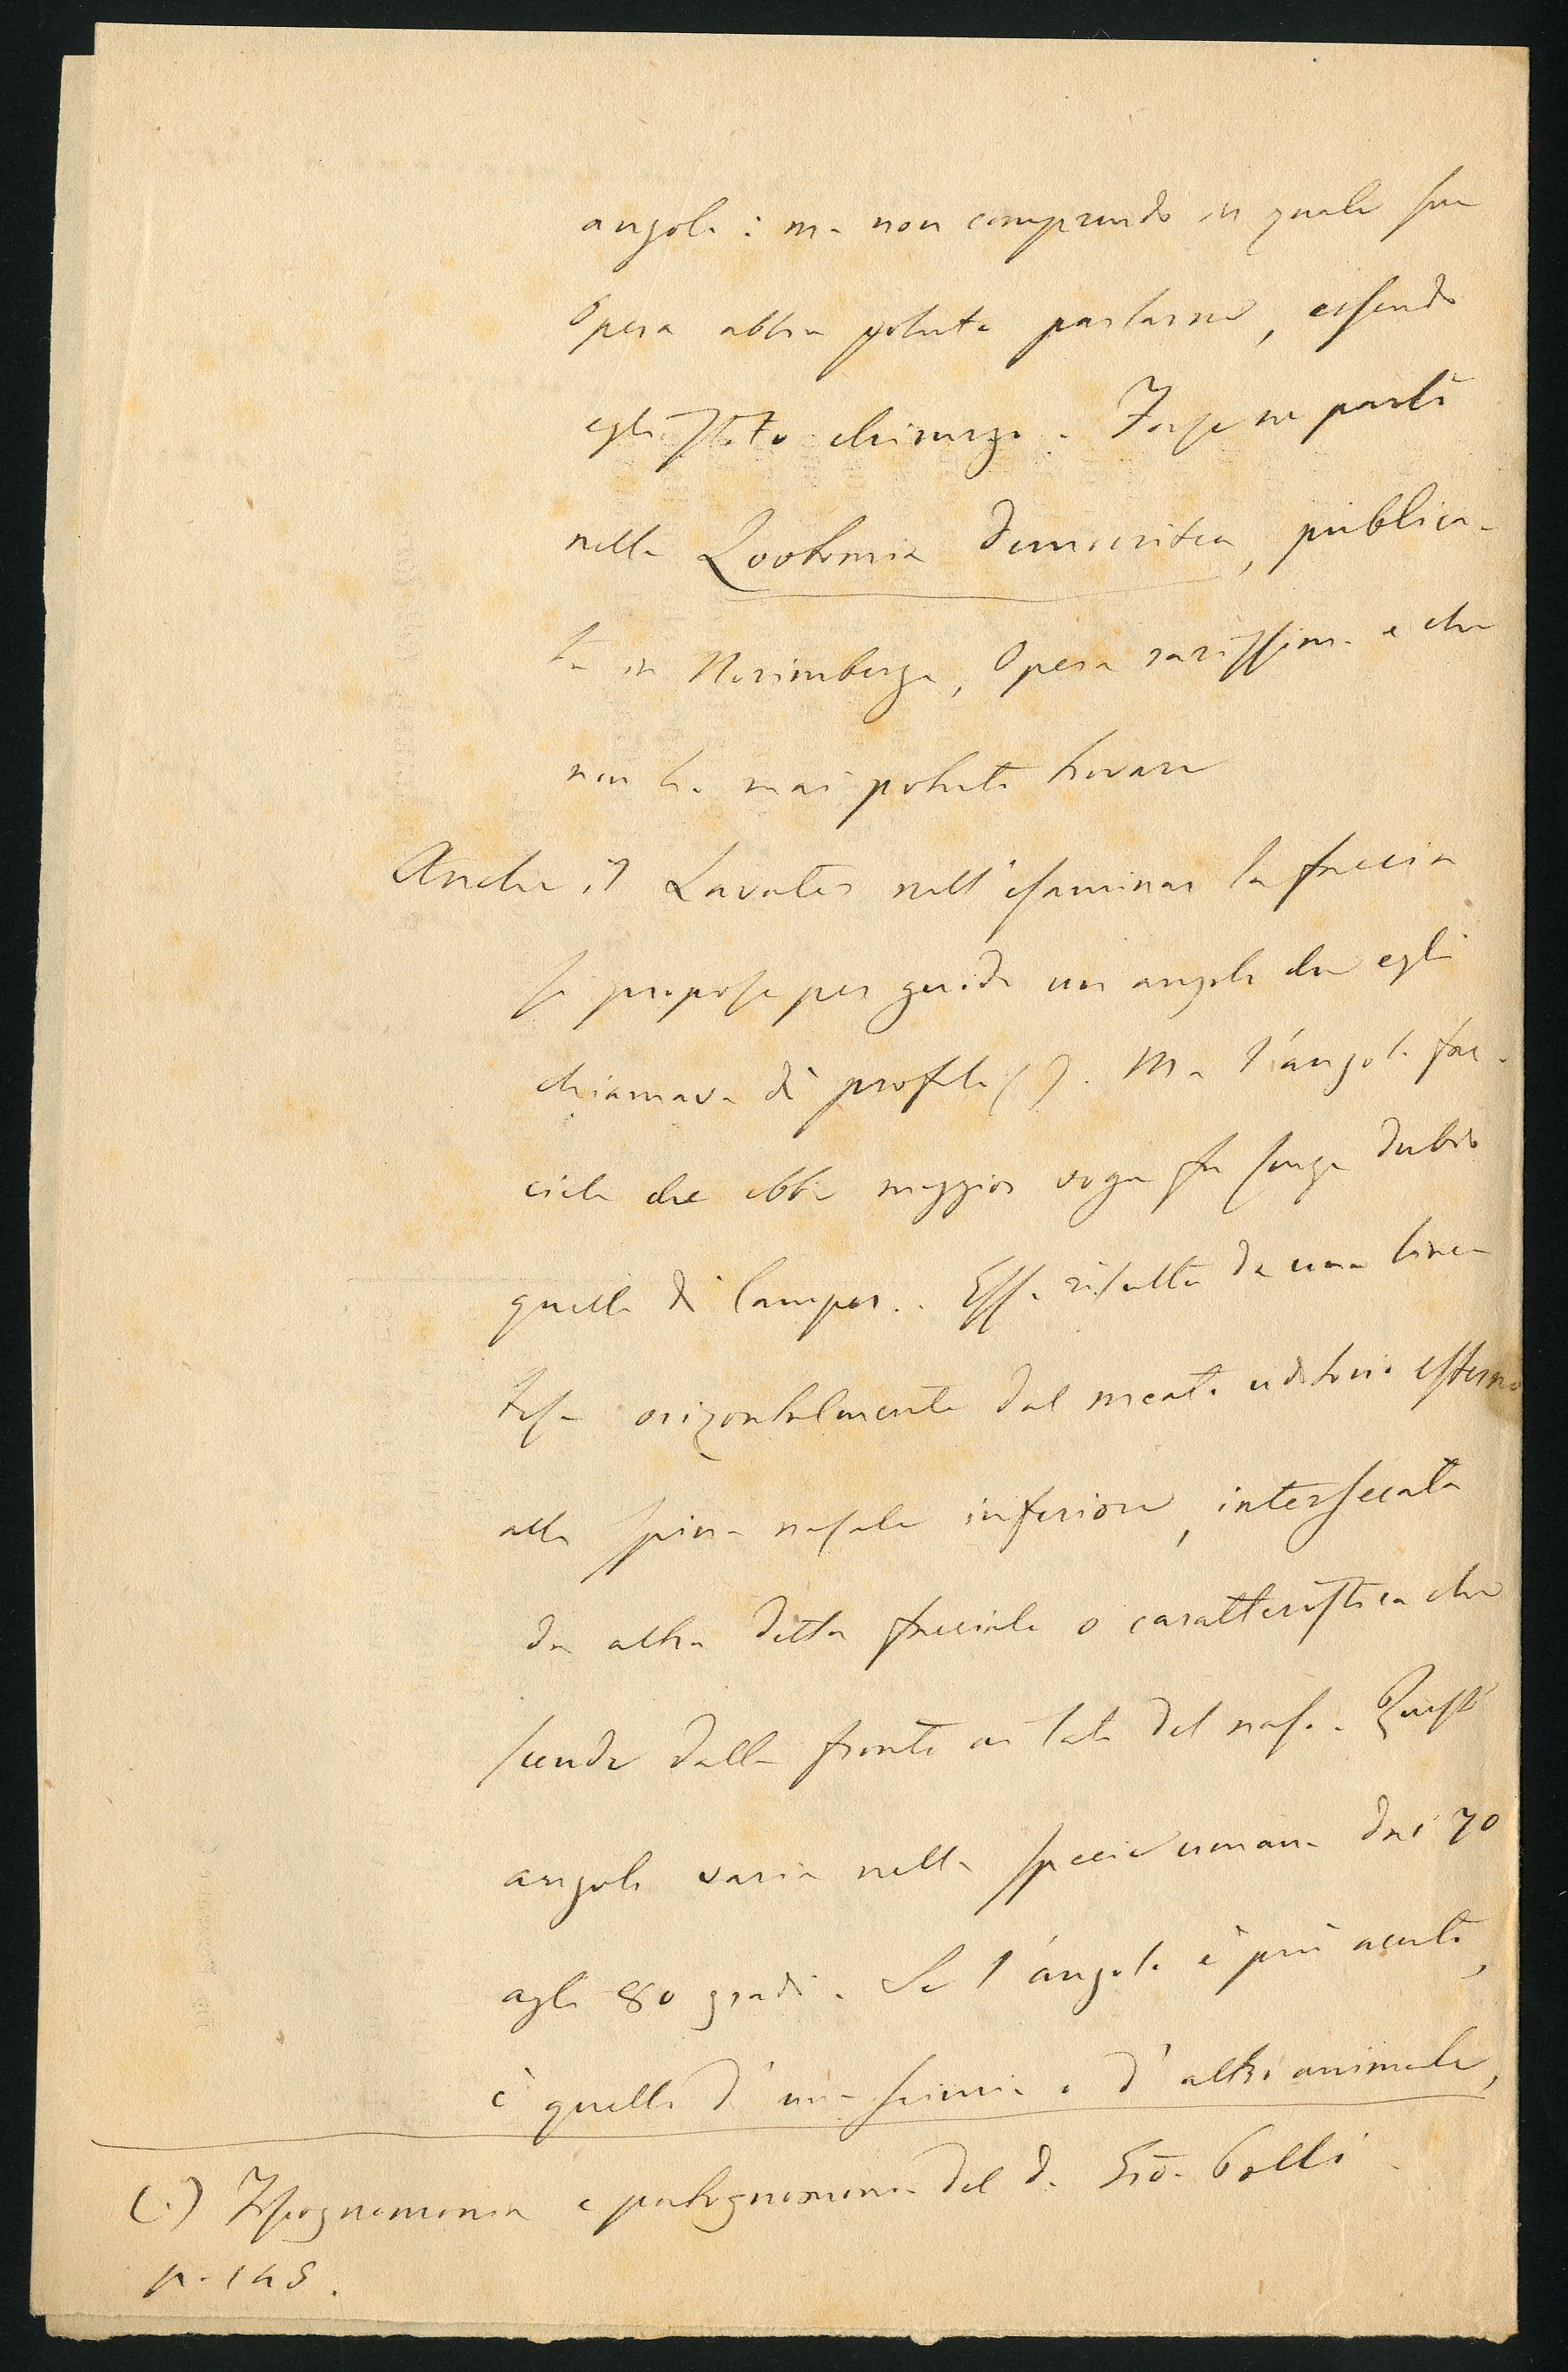 angolo: ma non comprendo in quale sua
Opera abbia potuto parlarne, essendo
egli stato chirurgo. Forse ne parlò
nella Zootomia democritea, pubblica-
ta in Norimberga, Opera rarissima e che
non ho mai potuto trovare
Anche il Lavater nell'esaminar la faccia
si propose per guida un angolo che egli
chiamava di profilo ( ). Ma l'angolo fac-
ciale che ebbe maggior voga fu senza dubio
quello di Camper. Esso risulta da una linea
tesa orizontalmente dal meato uditorio esterno
alla spina nasale inferiore, intersecata
da altra detta facciale o caratteristica che
scende dalla fronte ai lati del naso. Questo
angolo varia nella specie umana dai 70
agli 80 gradi. Se l'angolo è più acuto,
è quello d'una scimia o d'altro animale,
(.) Fisiognomonia e patognomonia del d. Gio. Polli
p. 145.